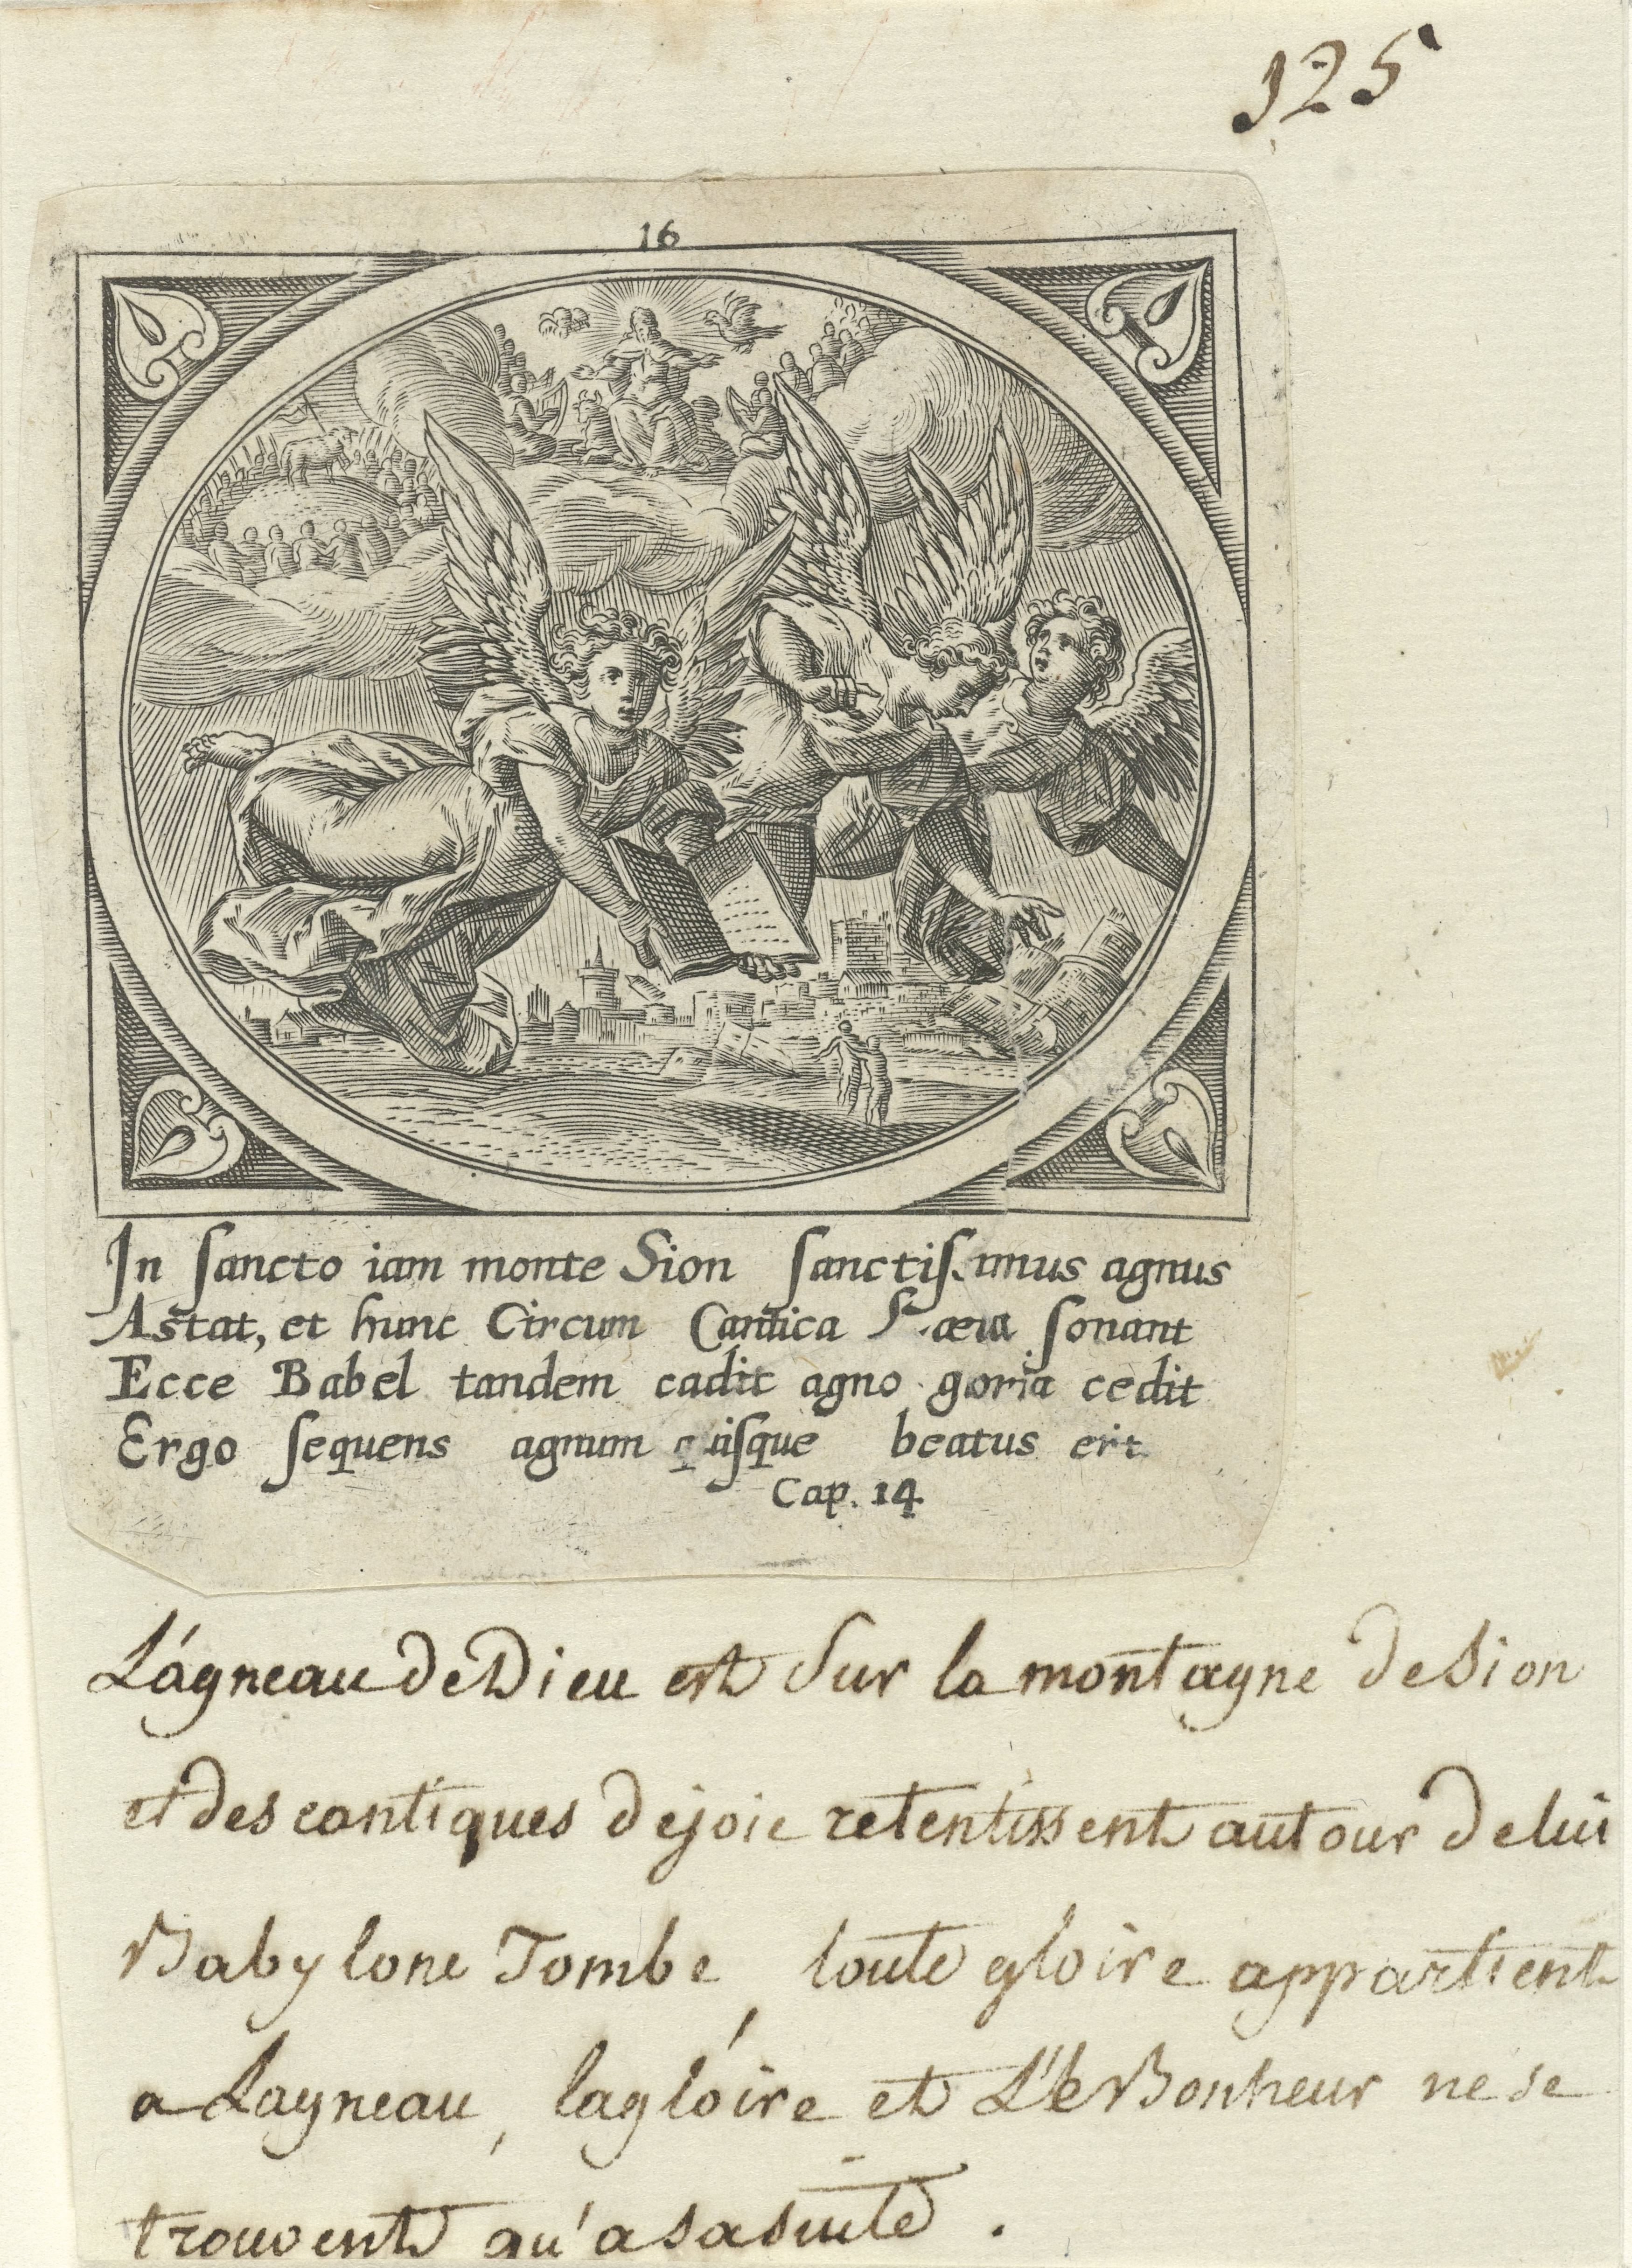 125
16
In sancto iam monte Sion sanctissimus agnus
Astat, et hunc Circum Cantica sonant
Ecce Babel tandem cadit agno goria cedit
Ergo sequens agnum quisque beatus erit
Cap. 14
L'ágneau de Dieu est Sur la montagne de Sion
et des cantiques de joie retentissent autour de lui
Babylone Tombe, toute gloire appartient
a Lagneau, la gloire et L'e Bonheur ne se
trouvent qu'a sa suite.